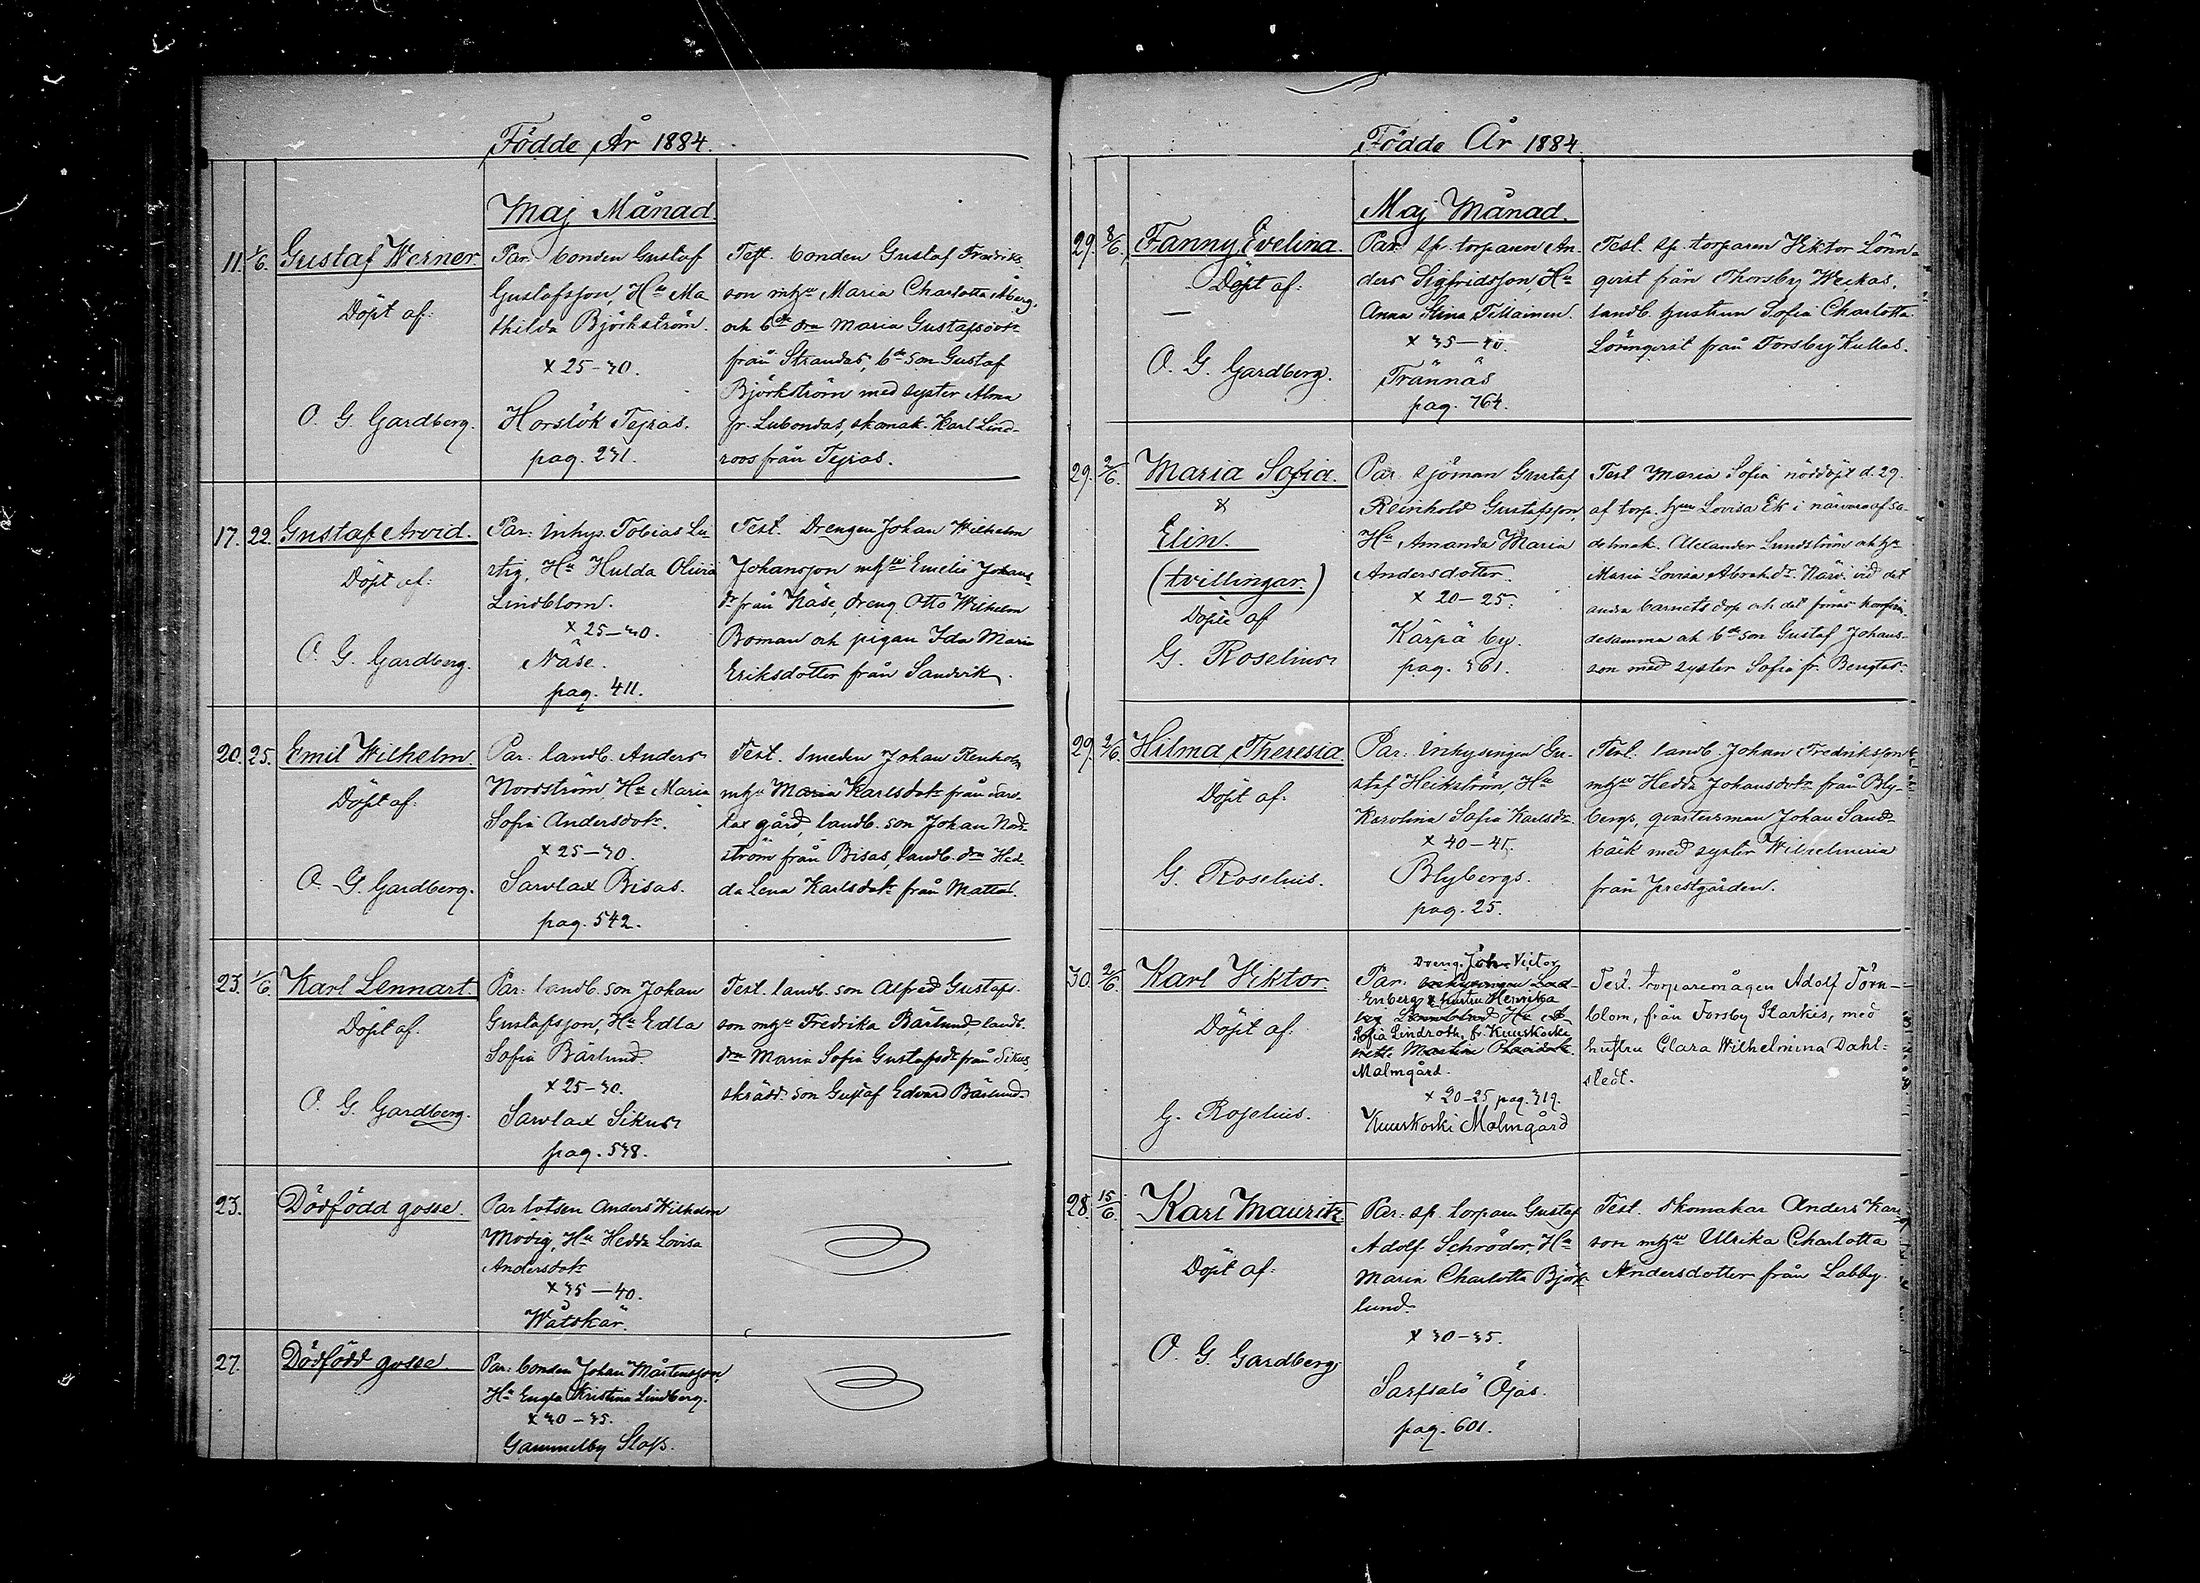 Födde År 1884.
Maj Månad.
11. 1/6. Gustaf Werner.
Döpt af:
O. G. Gardberg.
Par. bonden Gustaf
Gustafsson, Hu Ma
thilda Björkström.
x 25-30.
Horslök Tejras.
pag. 231.
Test. bonden Gustaf Fredriks-
son mhu Maria Charlotta Åberg,
och bde dra Maria Gustafsdotr
från Strandas, bde son Gustaf
Björkström med syster Alma
fr. Lubondas, skomak. Karl Lind-
roos från Tejras.
17. 22. Gustaf Arvid.
Döpt af:
O. G. Gardberg.
Par: Inhys. Tobias Lu
stig, Hu Hulda Olivia
Lindblom.
x 25-30.
Näse.
pag. 411.
Test. Drengen Johan Wilhelm
Johansson mhu Emelie Johans
dr från Näse, dreng Otto Wilhelm
Boman och pigan Ida Maria
Eriksdotter från Sandvik.
20. 25. Emil Wilhelm
Döpt af:
O. G. Gardberg.
Par: landb. Anders
Nordström, Hu Maria
Sofia Andersdotr.
x 25-30.
Sarvlax Bisas.
pag. 542.
Test. Smeden Johan Renholm
mhu Maria Karlsdotr från Sarv-
lax gård, landb. son Johan Nord-
ström från Bisas, landb. dra Hed-
da Lena Karlsdotr från Mattas.
23. 1/6. Karl Lennart
Döpt af.
O. G. Gardberg.
Par: landb. son Johan
Gustafsson, Hu Edla
Sofia Bärlund.
x 25-30.
Sarvlax Sikus
pag. 538.
Test. landb. son Alfred Gustafs-
son mhu Fredrika Bärlund landb.
dra Maria Sofia Gustafsdr från Sikus
skrädd. son Gustaf Edvard Bärlund.
23. Dödfödd gosse.
Par lotsen Anders Wilhelm
Modig, Hu Hedda Lovisa
Andersdotr
x 35-40.
Wåtskär.
27. Dödfödd gosse.
Par: bonden Johan Mårtensson,
Hu Engla Kristina Lindberg.
x 30-35.
Gammelby Slofs.
Födde År 1884.
Maj Månad.
29. 8/6. Fanny Evelina.
Döpt af:
O. G. Gardberg.
Par: sp. torparen An-
ders Sigfridsson, Hu
Anna Stina Tillainen.
x 35-40.
Trännäs
pag. 764.
Test. sp. torparen Viktor Lönn-
qvist från Thorsby Weckas,
landb. hustrun Sofia Charlotta
Lönnqvist från Forsby Kullas.
29. 2/6. Maria Sofia.
&
Elin.
(tvillingar.)
Döpte af
G. Roselius
Par: sjöman Gustaf
Reinhold Gustafsson,
Hu Amanda Maria
Andersdotter.
x 20-25.
Kärpä by.
pag. 361.
Test Maria Sofia nöddöpt d. 29.
af torp. hun Lovisa Ek i närvaro af sa-
delmak. Alexander Lundström och hu
Maria Lovisa Abrah.dr. Närv. vid det
andra barnets dop och det förras konfirm.
desamma och bde son Gustaf Johans-
son med syster Sofia fr. Bengtas.
29. 2/6. Hilma Theresia
Döpt af:
G. Roselius.
Par: Inhysingen Gu-
staf Heikström, Hu
Karolina Sofia Karlsdr.
x 40-45.
Blybergs.
pag. 25.
Test. landb. Johan Fredriksson
mhu Hedda Johansdotr från Bly-
bergs, qvartersman Johan Sand-
bäck med syster Wilhelmina
från prestgården.
30. 2/6. Karl Viktor
Döpt af:
G. Roselius.
Dreng. Joh. Victor
Par: Inhysingen
Enberg & hustru Henrika
Sofia Lindroth, fr. Kuuskoski
Malmgård.
x 20-25 pag. 319.
Kuuskoski Malmgård
Test. torparemågen Adolf Törn-
blom, från Forsby Starkis, med
hustru Clara Wilhelmina Dahl-
stedt.
28. 15/6. Karl Mauritz.
Döpt af:
O. G. Gardberg.
Par: sp. torparen Gustaf
Adolf Schröder, Hu
Maria Charlotta Björk-
lund.
x 30-35.
Sarfsalö Öjas.
pag. 601.
Test. skomakar Anders Karls-
son mhu Ulrika Charlotta
Andersdotter från Labby.